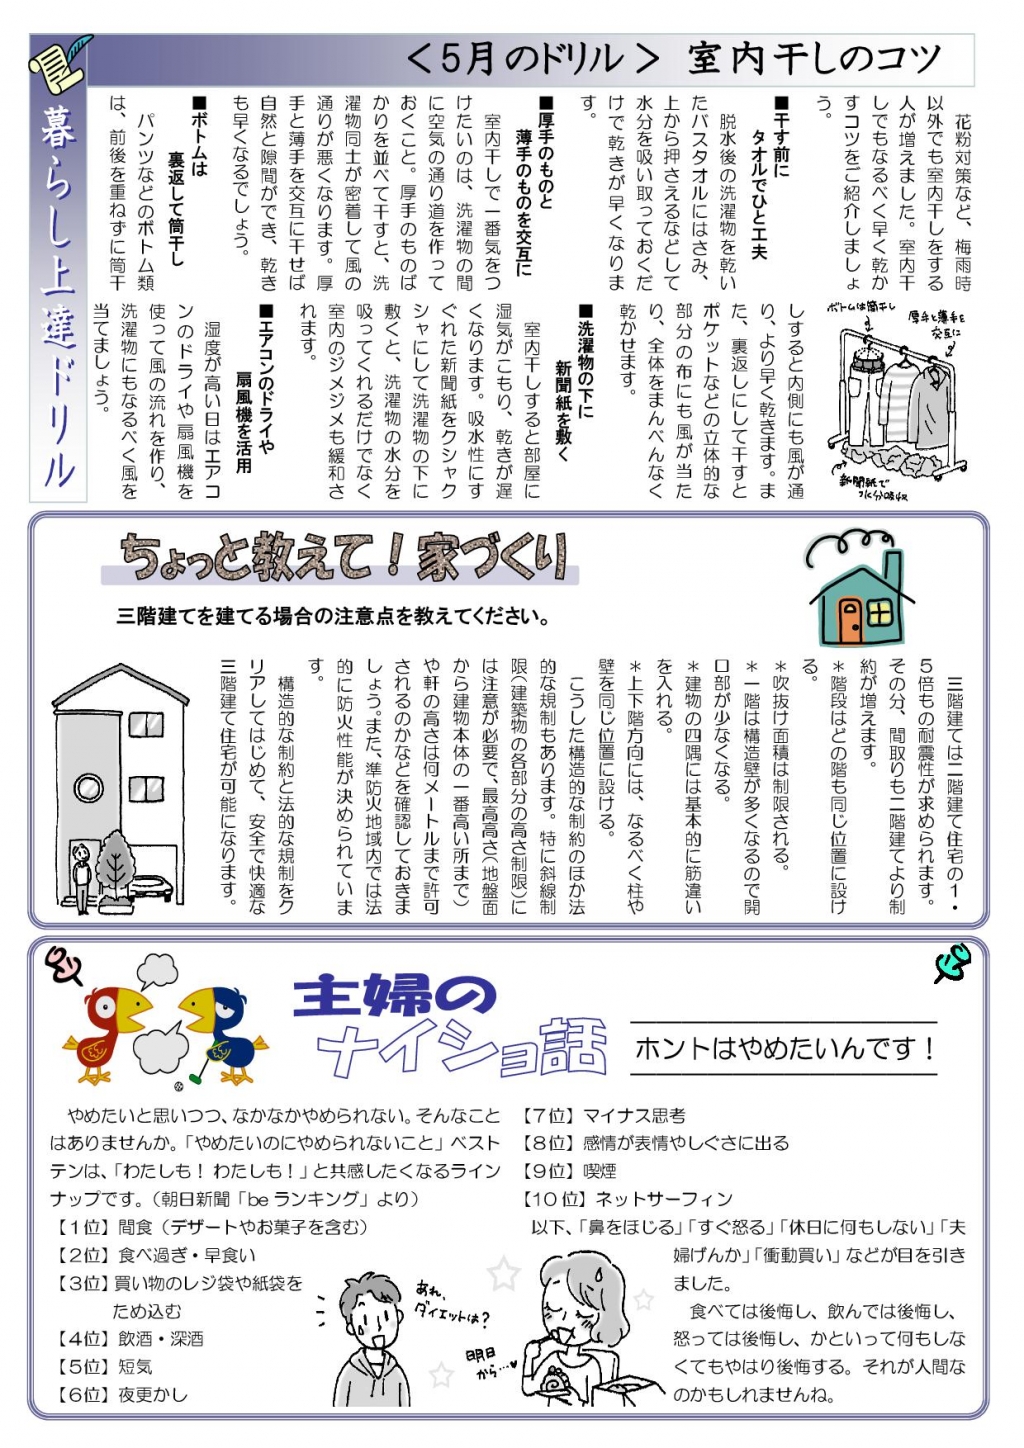 ＜5月のドリル＞ 室内干しのコツ
暮らし上達ドリル
　花粉対策など、梅雨時
以外でも室内干しをする
人が増えました。室内干
しでもなるべく早く乾か
すコツをご紹介しましょ
う。
■干す前に
タオルでひと工夫
　脱水後の洗濯物を乾い
たバスタオルにはさみ、
上から押さえるなどして
水分を吸い取っておくだ
けで乾きが早くなりま
す。
■厚手のものと
薄手のものを交互に
　室内干しで一番気をつ
けたいのは、洗濯物の間
に空気の通り道を作って
おくこと。厚手のものば
かりを並べて干すと、洗
濯物同士が密着して風の
通りが悪くなります。厚
手と薄手を交互に干せば
自然と隙間ができ、乾き
も早くなるでしょう。
■ボトムは
裏返して筒干し
　パンツなどのボトム類
は、前後を重ねずに筒干
しすると内側にも風が通
り、より早く乾きます。ま
た、裏返しにして干すと
ポケットなどの立体的な
部分の布にも風が当た
り、全体をまんべんなく
乾かせます。
■洗濯物の下に
新聞紙を敷く
　室内干しすると部屋に
湿気がこもり、乾きが遅
くなります。吸水性にす
ぐれた新聞紙をクシャク
シャにして洗濯物の下に
敷くと、洗濯物の水分を
吸ってくれるだけでなく
室内のジメジメも緩和さ
れます。
■エアコンのドライや
扇風機を活用
　湿度が高い日はエアコ
ンのドライや扇風機を
使って風の流れを作り、
洗濯物にもなるべく風を
当てましょう。
ボトムは筒干し
厚手と薄手を
交互に
新聞紙で
水分吸収
ちょっと教えて！家づくり
三階建てを建てる場合の注意点を教えてください。
　三階建ては二階建て住宅の1・
5倍もの耐震性が求められます。
その分、間取りも二階建てより制
約が増えます。
＊階段はどの階も同じ位置に設け
る。
＊吹抜け面積は制限される。
＊一階は構造壁が多くなるので開
口部が少なくなる。
＊建物の四隅には基本的に筋違い
を入れる。
＊上下階方向には、なるべく柱や
壁を同じ位置に設ける。
　こうした構造的な制約のほか法
的な規制もあります。特に斜線制
限（建築物の各部分の高さ制限）に
は注意が必要で、最高高さ（地盤面
から建物本体の一番高い所まで）
や軒の高さは何メートルまで許可
されるのかなどを確認しておきま
しょう。また、準防火地域内では法
的に防火性能が決められていま
す。
　構造的な制約と法的な規制をク
リアしてはじめて、安全で快適な
三階建て住宅が可能になります。
主婦の
ナイショ話
ホントはやめたいんです！
　やめたいと思いつつ、なかなかやめられない。そんなこと
はありませんか。「やめたいのにやめられないこと」ベスト
テンは、「わたしも！ わたしも！」と共感したくなるライン
ナップです。（朝日新聞「be ランキング」より）
【1位】間食（デザートやお菓子を含む）
【2位】食べ過ぎ・早食い
【3位】買い物のレジ袋や紙袋を
ため込む
【4位】飲酒・深酒
【5位】短気
【6位】夜更かし
【7位】マイナス思考
【8位】感情が表情やしぐさに出る
【9位】喫煙
【10位】ネットサーフィン
　以下、「鼻をほじる」「すぐ怒る」「休日に何もしない」「夫
婦げんか」「衝動買い」などが目を引き
ました。
　食べては後悔し、飲んでは後悔し、
怒っては後悔し、かといって何もしな
くてもやはり後悔する。それが人間な
のかもしれませんね。
あれ、
ダイエットは？
明日
から…♥